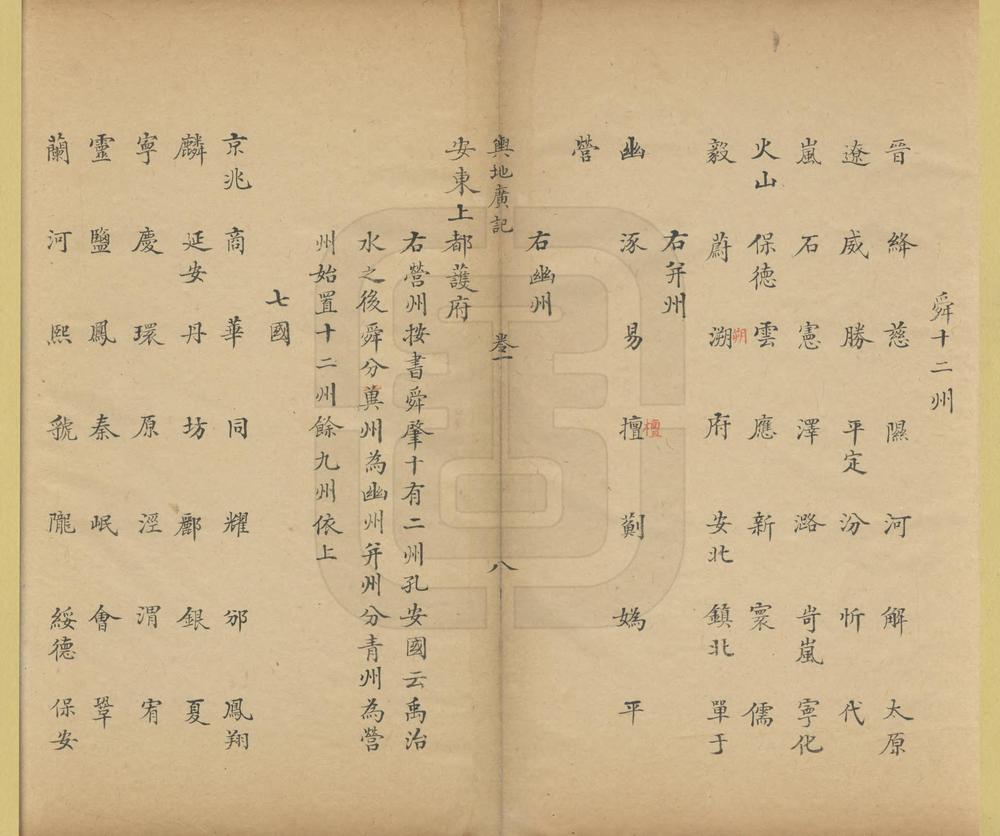 舜十二州
晉 絳 慈 隰 河 解 太原
遼 威 勝 平定 汾 忻 代
嵐 石 憲 澤 潞 岢嵐 寧化
火山 保德 雲 應 新 寰 儒
毅 蔚 溯 府 安北 鎮北 單于
朔
右并州
幽 涿 易 擅 薊 媯 平
檀
營
右幽州
輿地廣記 卷一 八
安東上都護府
右營州按書舜肇十有二州孔安國云禹治
水之後舜分冀州為幽州并州分青州為營
州始置十二州餘九州依上
七國
京兆 商 華 同 耀 邠 鳳翔
麟 延安 丹 坊 鄜 銀 夏
寧 慶 環 原 涇 渭 宥
靈 鹽 鳳 秦 岷 會 鞏
蘭 河 熙 虢 隴 綏德 保安